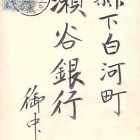 郡下白河町
瀬谷銀行
御中